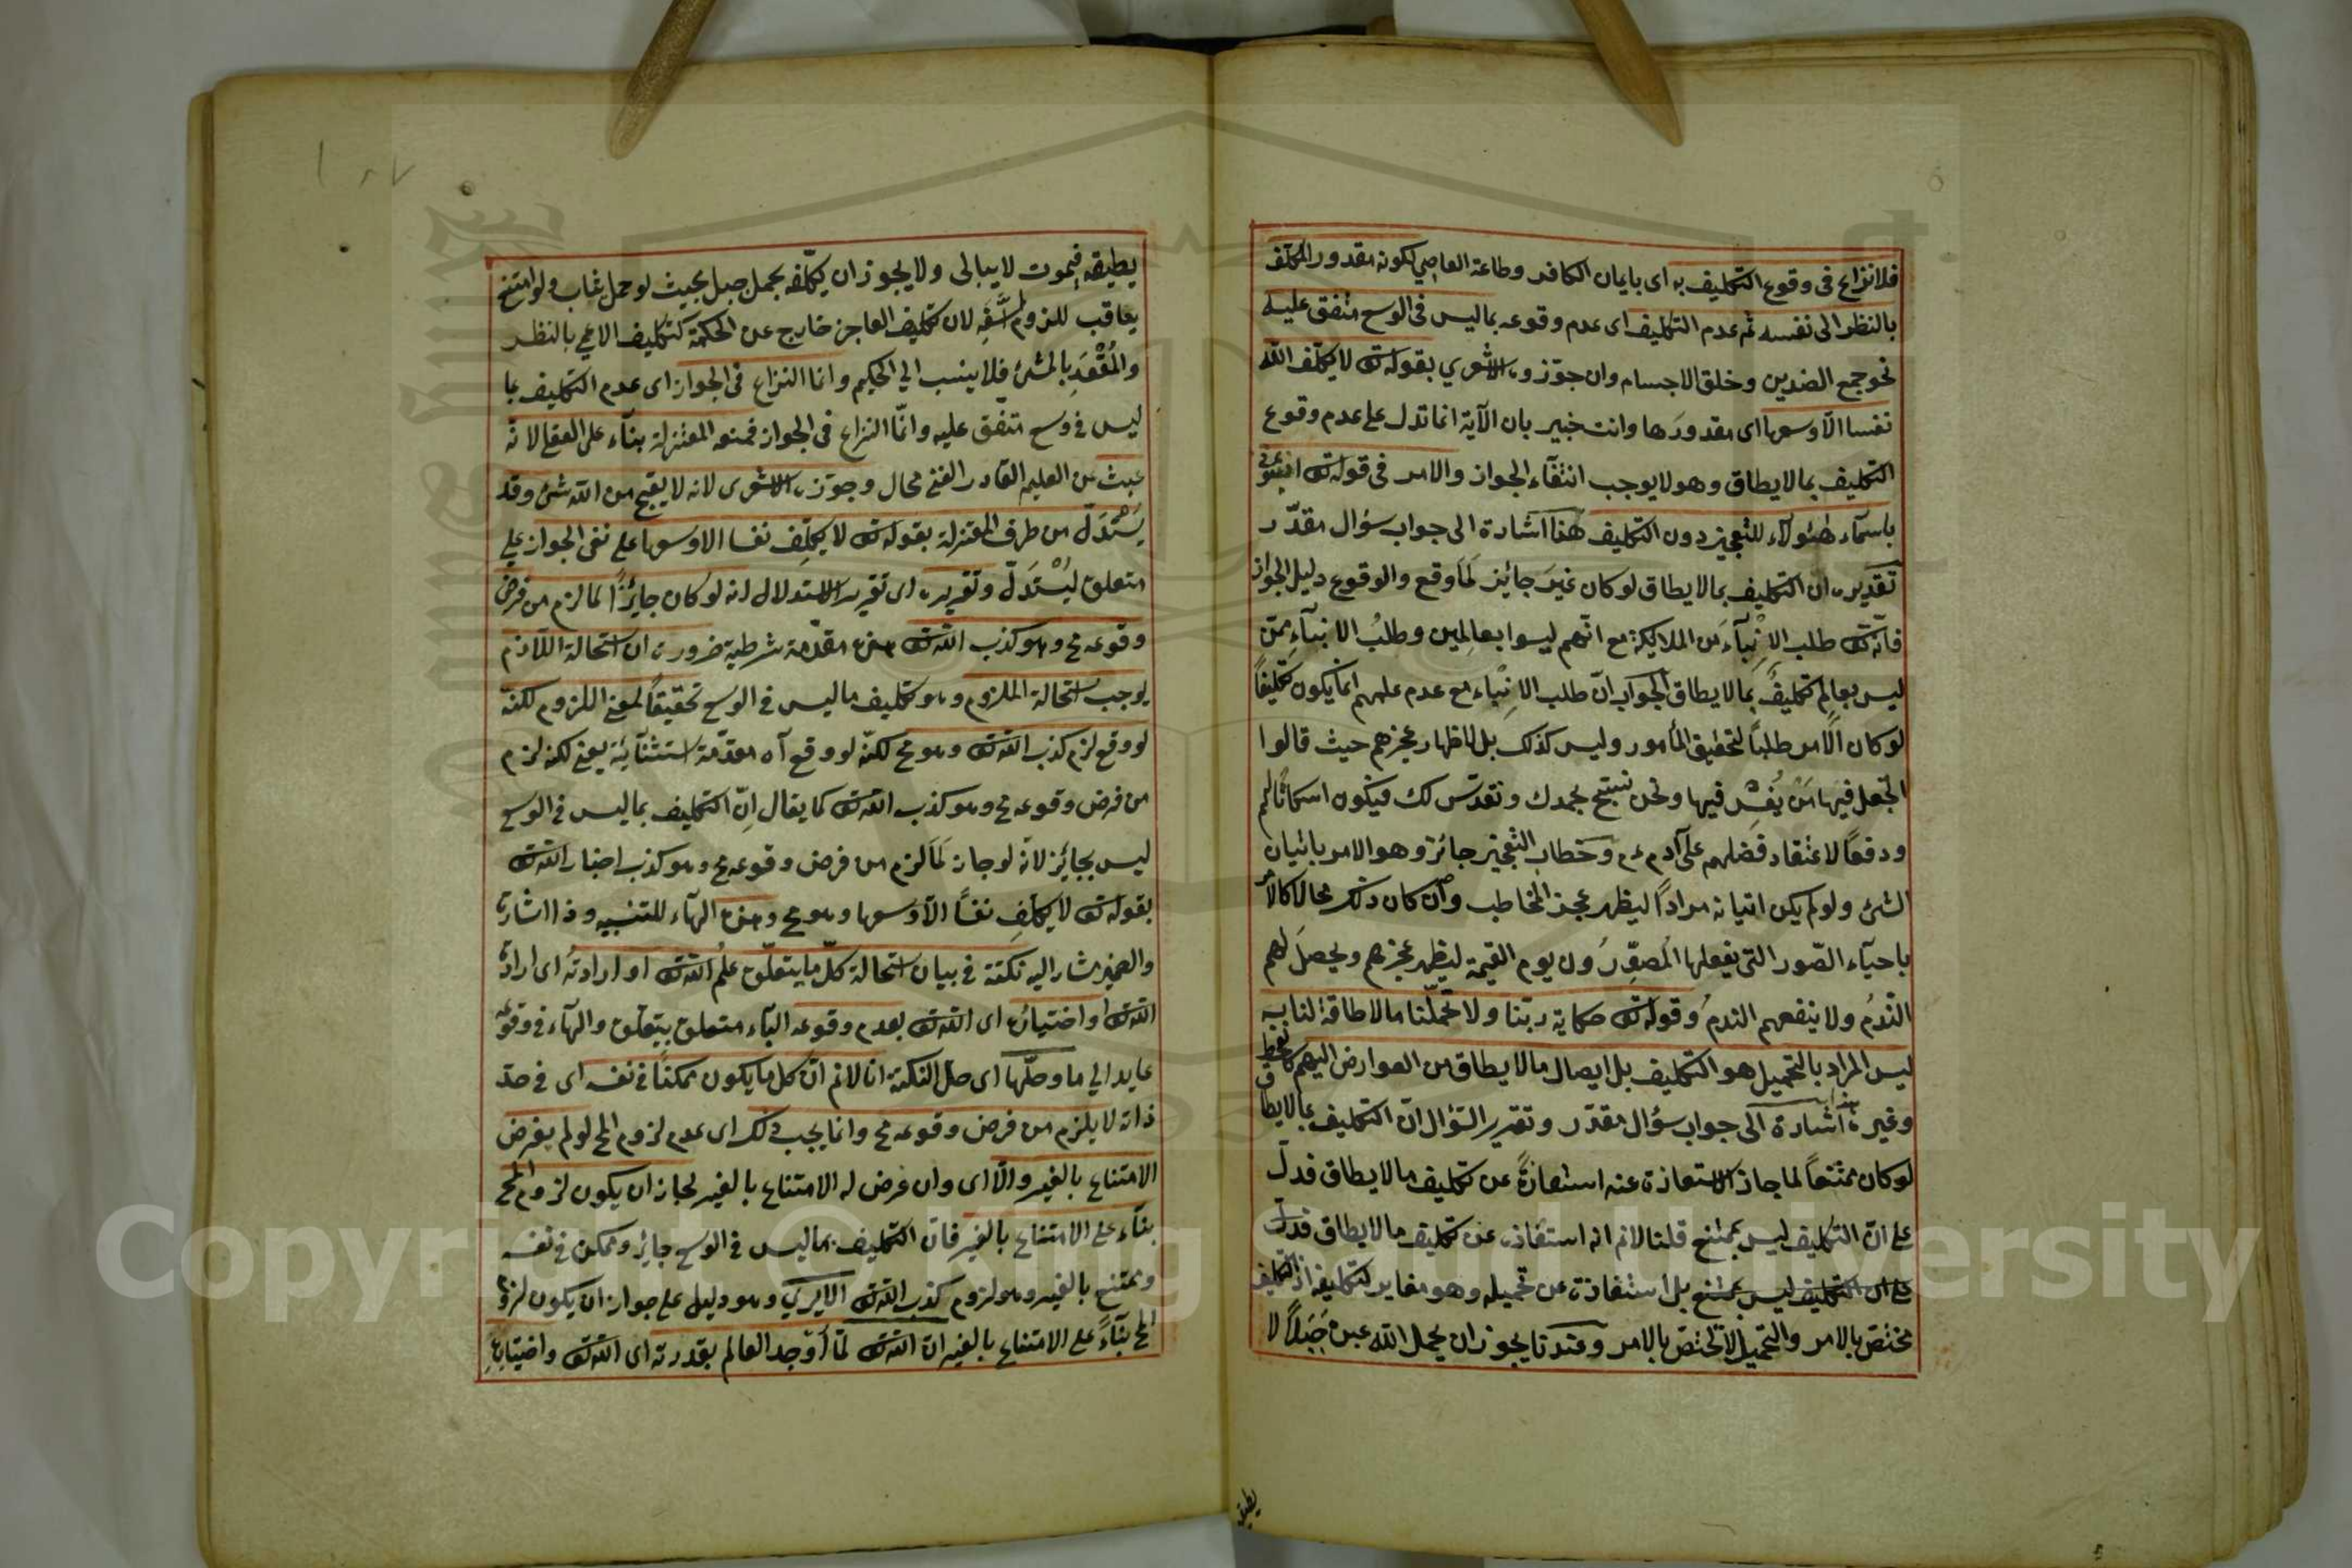 فلا نزاع فى وقوع التكليف به اى بايمان الكافر وطاعة العاصي لكونه مقدور المكلف
بالنظر الى نفسه ثم عدم التكليف اى عدم وقوعه بما ليس فى الوسع متفق عليه
نحو جمع الضدين وخلق الاجسام وان جوّزه الاشعري بقوله تع لا يكلّف الله
نفسا الاّ وسعها اى مقدورَها وانت خبير بان الآية انما تدل على عدم وقوع
التكليف بما لا يطاق وهو لا يوجب انتفآء الجواز والامر فى قوله تع انبئونى
باسمآء هؤلآء للتعجيز دون التكليف هذا اشارة الى جواب سؤال مقدّر
تقديره ان التكليف بما لا يطاق لو كان غيرَ جائيز لَمَا وقع والوقوع دليل الجواز
فانّه تع طلب الاِنْبَآءَ من الملايكة مع انّهم ليسوا بعالِمين وطلبُ الانبآءِ ممّن
ليس بعالِم تكليفٌ بما لا يطاق الجواب انّ طلب الاِنْباء مع عدم علمهم انما يكون تكليفاً
لو كان الاَمر طلبًا لتحقيق المأمور وليس كذلك بل لاظهار عجزهم حيث قالوا
اتجعل فيها مَنْ يُفْسِد فيها ونحن نسبّح بحمدك ونقدّس لك فيكون اسكاتًا لهم
ودفعًا لاعتقاد فضلهم على آدم عم وخطاب التعجيز جائز وهو الامر باتيان
الشئ ولو لم يكن اتيانه مرادًا ليظهر عجز المخاطب وان كان ذلك محالا كالامر
باحيآء الصّور التى يفعلها المُصوِّرُون يوم القيمة ليظهر عجزهم ويحصلَ لهم
النّدمُ ولا ينفعهم الندمُ وقوله تع حكاية ربّنا ولا تحمّلنا ما لا طاقة لنا به
ليس المراد بالتحميل هو التكليف بل ايصال ما لا يطاق من العوارض اليهم كالقحط
وغيره هذا اشارة الى جواب سؤال مقدّر وتقرير السّؤال انّ التكليف بما لا يطاق
لو كان ممتنعًا لما جاز الاستعاذة عنه استعاذةً عن تكليف ما لا يطاق فدلّ
على انّ التكليف ليس بممتنع قلنا لانم انه استعاذه عن تكليف ما لا يطاق فدل
على ان التكليف ليس بممتنع بل استعاذة عن تحميله وهو مغاير لتكليفه اذ التكليف
مختصّ بالامر والتحميل لا تختصّ بالامر وعندنا يجوز ان يحمل الله عبده جَبَلًا لا
يطيقه
يطيقه فيموت لا يبالى ولا يجوز ان يكلّفه بحمل جبل بحيث لو حمل يثاب ولو امتنع
يعاقب للزوم السَّفَهِ لان تكليف العاجز خارج عن الحكمة كتكليف الاعمى بالنظر
والمُقْعَدِ بالمشئ فلا ينسب الي الحكيم وانما النزاع فى الجواز اى عدم التكليف بما
ليس فى وسع متفق عليه وانّما النزاع فى الجواز فمنعه المعتزلة بنآء على العقل لانّه
عبث من العليم القادر الغنى محال وجوّزه الاشعرى لانه لا يقبح من الله شئ وقد
يُسْتَدَلّ من طرف المعتزلة بقوله تع لا يكلِّف نفسا الا وسعها على نفى الجواز على
متعلق ليُسْتَدَلّ وتقريره اى تقرير الاستدلال انه لو كان جايزًا لما لزم من فرض
وقوعه مح وهو كذب الله تع هذه مقدّمة شرطية ضرورة ان استحالة اللازم
يوجب استحالة الملزوم وهو تكليف ما ليس فى الوسع تحقيقًا لمعنى اللزوم لكنّه
لو وقع لزم كذب الله تع وهو مح لكنّه لو وقع آه مقدّمة استثنآئيّة يعنى لكنه لزم
من فرض وقوعه مح وهو كذب الله تع كما يقال اِنّ التكليف بما ليس فى الوسع
ليس بجائِز لانّه لو جاز لَمَا لزم من فرض وقوعه مح وهو كذب اخبار الله تع
بقوله تع لا يكلّفِ نفسًا الاّ وسعها وهو مح وهذه الهآء للتنبيه وذا اشارة
والضمير مشار اليه نكتة فى بيان استحالة كلّ ما يتعلّق علمُ الله تع او ارادتُه اى ارادة
الله تع او اختياره اى الله تع بعدم وقوعه البآء متعلق بيتعلّق والهآء فى وقوعه
عايد الي ما وحلّها اى حلّ النكتة انا لانم انّ كل ما يكون ممكنًا فى نفسه اى فى حدّ
ذاته لا يلزم من فرض وقوعه مح وانما يجب ذلك اى عدم لزوم المح لو لم يعرض
الامتناع بالغير والاّ اى وان عرض له الامتناع بالغير لجاز ان يكون لزوم المح
بنآء على الامتناع بالغير فانّ التكليف بما ليس فى الوسع جايز وممكن فى نفسه
وممتنع بالغير وهو لزوم كذب الله تع الا يرى وهو دليل على جواز ان يكون لزوم
المح بنآءً على الامتناع بالغير انّ الله تع لمّا اَوْجد العالم بقدرته اى الله تع واختياره